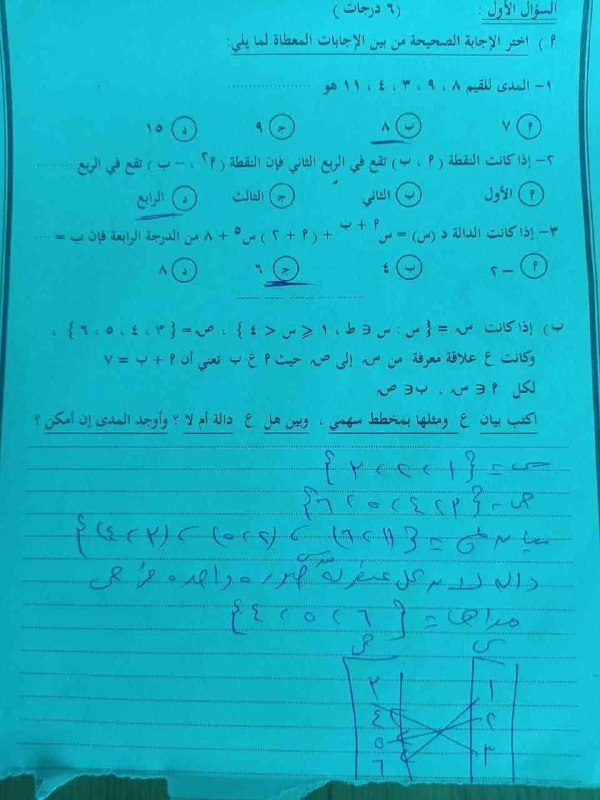 السؤال الأول : ( ٦ درجات )
م ) اختر الإجابة الصحيحة من بين الإجابات المعطاة لما يلي:
١- المدى للقيم ٨ ، ٩ ، ٣ ، ٤ ، ١١ هو ..........
م ٧ ب ٨ جـ ٩ د ١٥
٢- إذا كانت النقطة ( م ، ب ) تقع في الربع الثاني فإن النقطة ( م٢ ، - ب ) تقع في الربع ........
م الأول ب الثاني جـ الثالث د الرابع
٣- إذا كانت الدالة د (س) = س م + ب + ( م + ٢ ) س٥ + ٨ من الدرجة الرابعة فإن ب = ....
م -٢ ب ٤ جـ ٦ د ٨
ب) إذا كانت سـ = { س : س ∈ ط ، ١ ⩽ س < ٤ } ، صـ = { ٣ ، ٤ ، ٥ ، ٦ } ،
وكانت ع علاقة معرفة من سـ إلى صـ حيث م ع ب تعني أن م + ب = ٧
لكل م ∈ سـ ، ب ∈ صـ
اكتب بيان ع ومثلها بمخطط سهمي ، وبين هل ع دالة أم لا ؟ وأوجد المدى إن أمكن ؟
سـ = { ١ ، ٢ ، ٣ }
صـ = { ٣ ، ٤ ، ٥ ، ٦ }
بيان ع = { (١ ، ٦) ، (٢ ، ٥) ، (٣ ، ٤) }
دالة لان كل عنصر له صورة واحدة
مداها = { ٦ ، ٥ ، ٤ }
س ص
١ ٣
٢ ٤
٣ ٥
٦